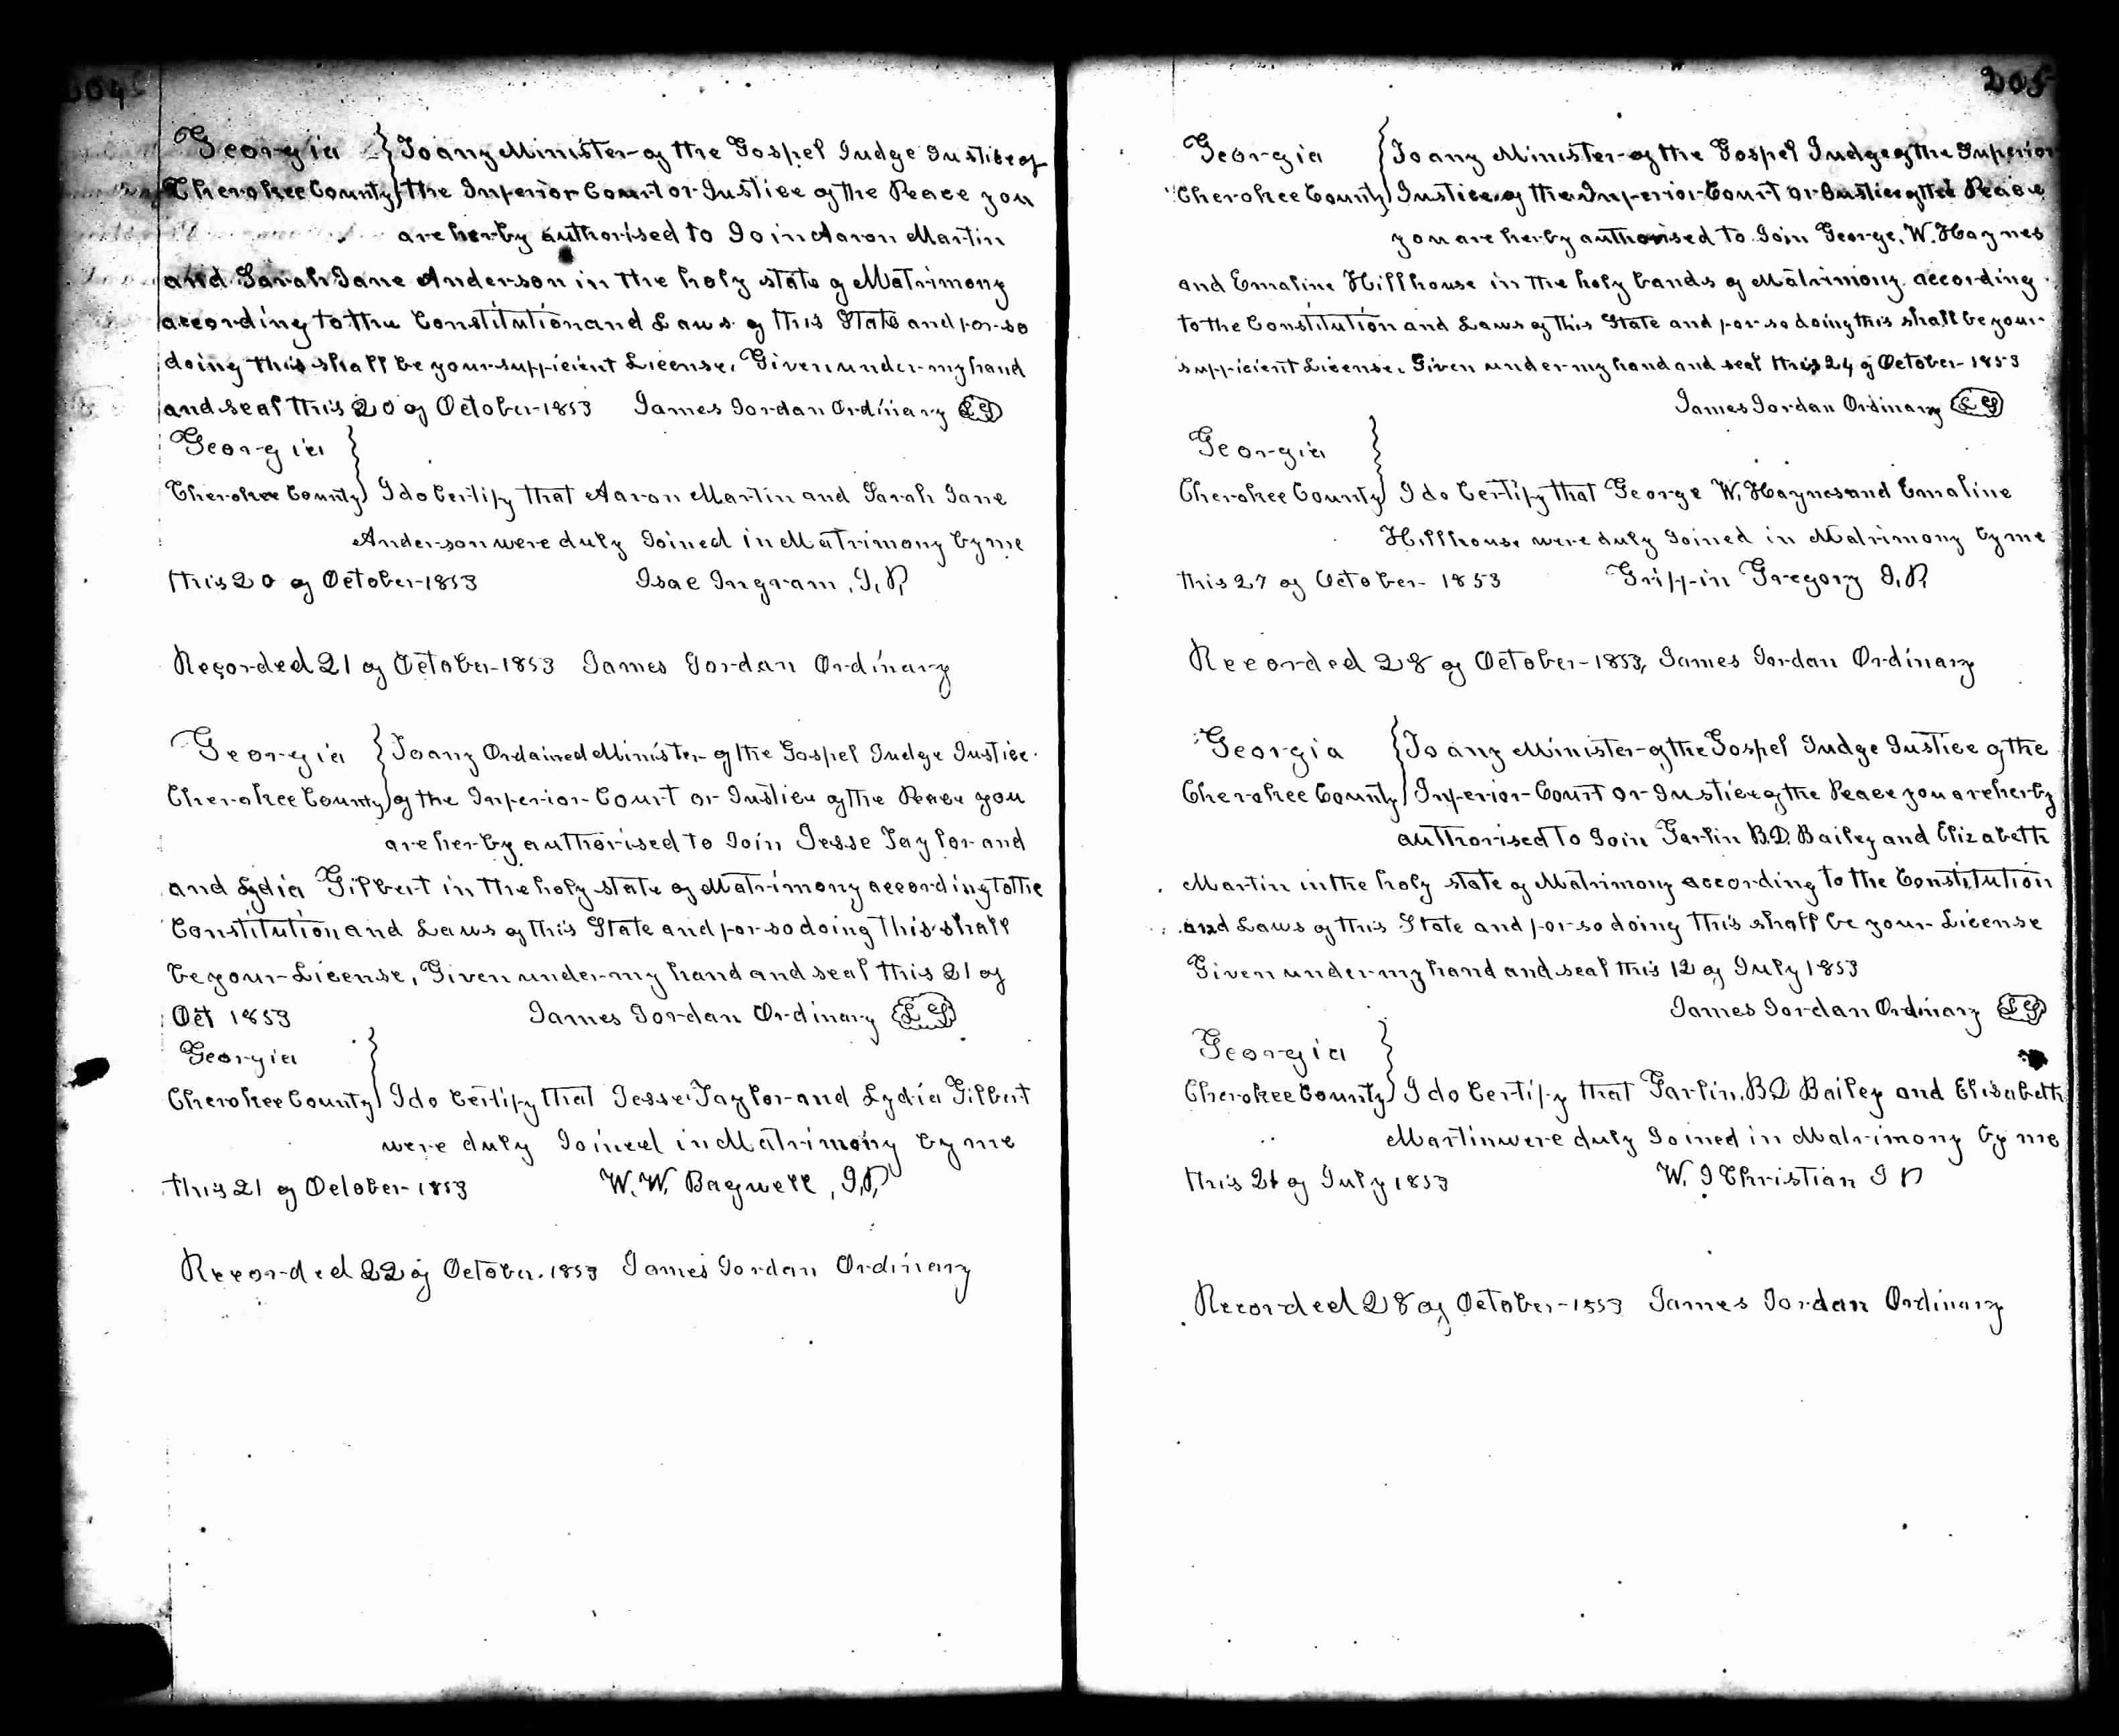 204
Georgia } To any Minister of the Gospel Judge Justice of
Cherokee County } the Inferior Court or Justice of the Peace you
are herby authorised to Join Aaron Martin
and Sarah Jane Anderson in the holy state of Matrimony
according to the Constitution and Laws of this State and for so
doing this shall be your sufficient License, Given under my hand
and seal this 20 of October 1853 James Jordan Ordinary LS
Georgia }
Cherokee County } I do Certify that Aaron Martin and Sarah Jane
Anderson were duly Joined in Matrimony by me
this 20 of October 1853 Isac Ingram, J, P,
Recorded 21 of October 1853 James Jordan Ordinary
Georgia } To any Ordained Minister of the Gospel Judge Justice
Cherokee County } of the Inferior Court or Justice of the Peace you
are herby authorised to Join Jesse Taylor and
and Lydia Gilbert in the holy state of Matrimony according to the
Constitution and Laws of this State and for so doing this shall
be your License, Given under my hand and seal this 21 of
Oct 1853 James Jordan Ordinary LS
Georgia }
Cherokee County } I do Certify that Jesse Taylor and Lydia Gilbert
were duly Joined in Matrimony by me
this 21 of October 1853 W. W. Bagwell, J, P,
Recorded 22 of October 1853 James Jordan Ordinary
205
Georgia } To any Minister of the Gospel Judge of the Superior
Cherokee County } Justice of the Inferior Court or Justice of the Peace
you are herby authorised to Join George, W. Haynes
and Emaline Hillhouse in the holy bands of Matrimony according
to the Constitution and Laws of this State and for so doing this shall be your
sufficient License. Given under my hand and seal this 24 of October 1853
James Jordan Ordinary LS
Georgia }
Cherokee County } I do Certify that George W. Haynes and Emaline
Hillhouse were duly Joined in Matrimony by me
this 27 of October 1853 Griffin Gregory J, P,
Recorded 28 of October 1853, James Jordan Ordinary
Georgia } To any Minister of the Gospel Judge Justice of the
Cherokee County } Inferior Court or Justice of the Peace you are herby
authorised to Join Garlin B.D. Bailey and Elizabeth
Martin in the holy state of Matrimony according to the Constitution
and Laws of this State and for so doing this shall be your License
Given under my hand and seal this 12 of July 1853
James Jordan Ordinary LS
Georgia }
Cherokee County } I do Certify that Garlin, B.D Bailey and Elisabeth
Martin were duly Joined in Matrimony by me
this 21 of July 1853 W. J Christian J P
Recorded 28 of October 1853 James Jordan Ordinary